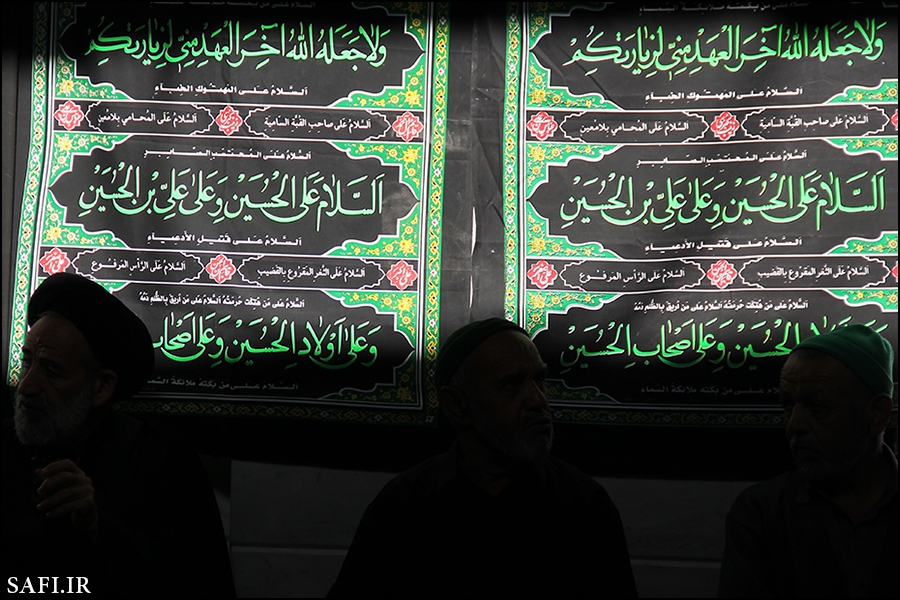 السلام على من بكته ملائكة السماء
ولا جعله الله آخر العهد مني لزيارتكم
السلام على المهتوك الخباء
السلام على صاحب القبة السامية
السلام على المحامي بلا معين
السلام على المحتسب الصابر
السلام على الحسين وعلى علي بن الحسين
السلام على قتيل الأدعياء
السلام على الثغر المقروع بالقضيب
السلام على الرأس المرفوع
السلام على من هتكت حرمته السلام على من أريق بالظلم دمه
وعلى أولاد الحسين وعلى أصحاب
السلام على من بكته ملائكة السماء
السماء
ولا جعله الله آخر العهد مني لزيارتكم
السلام على المهتوك الخباء
السلام على صاحب القبة السامية
السلام على المحامي بلا معين
السلام على المحتسب الصابر
السلام على الحسين وعلى علي بن الحسين
السلام على قتيل الأدعياء
السلام على الثغر المقروع بالقضيب
السلام على الرأس المرفوع
السلام على من هتكت حرمته السلام على من أريق بالظلم دمه
الحسين وعلى أصحاب الحسين
السلام على من بكته ملائكة السماء
SAFI.IR